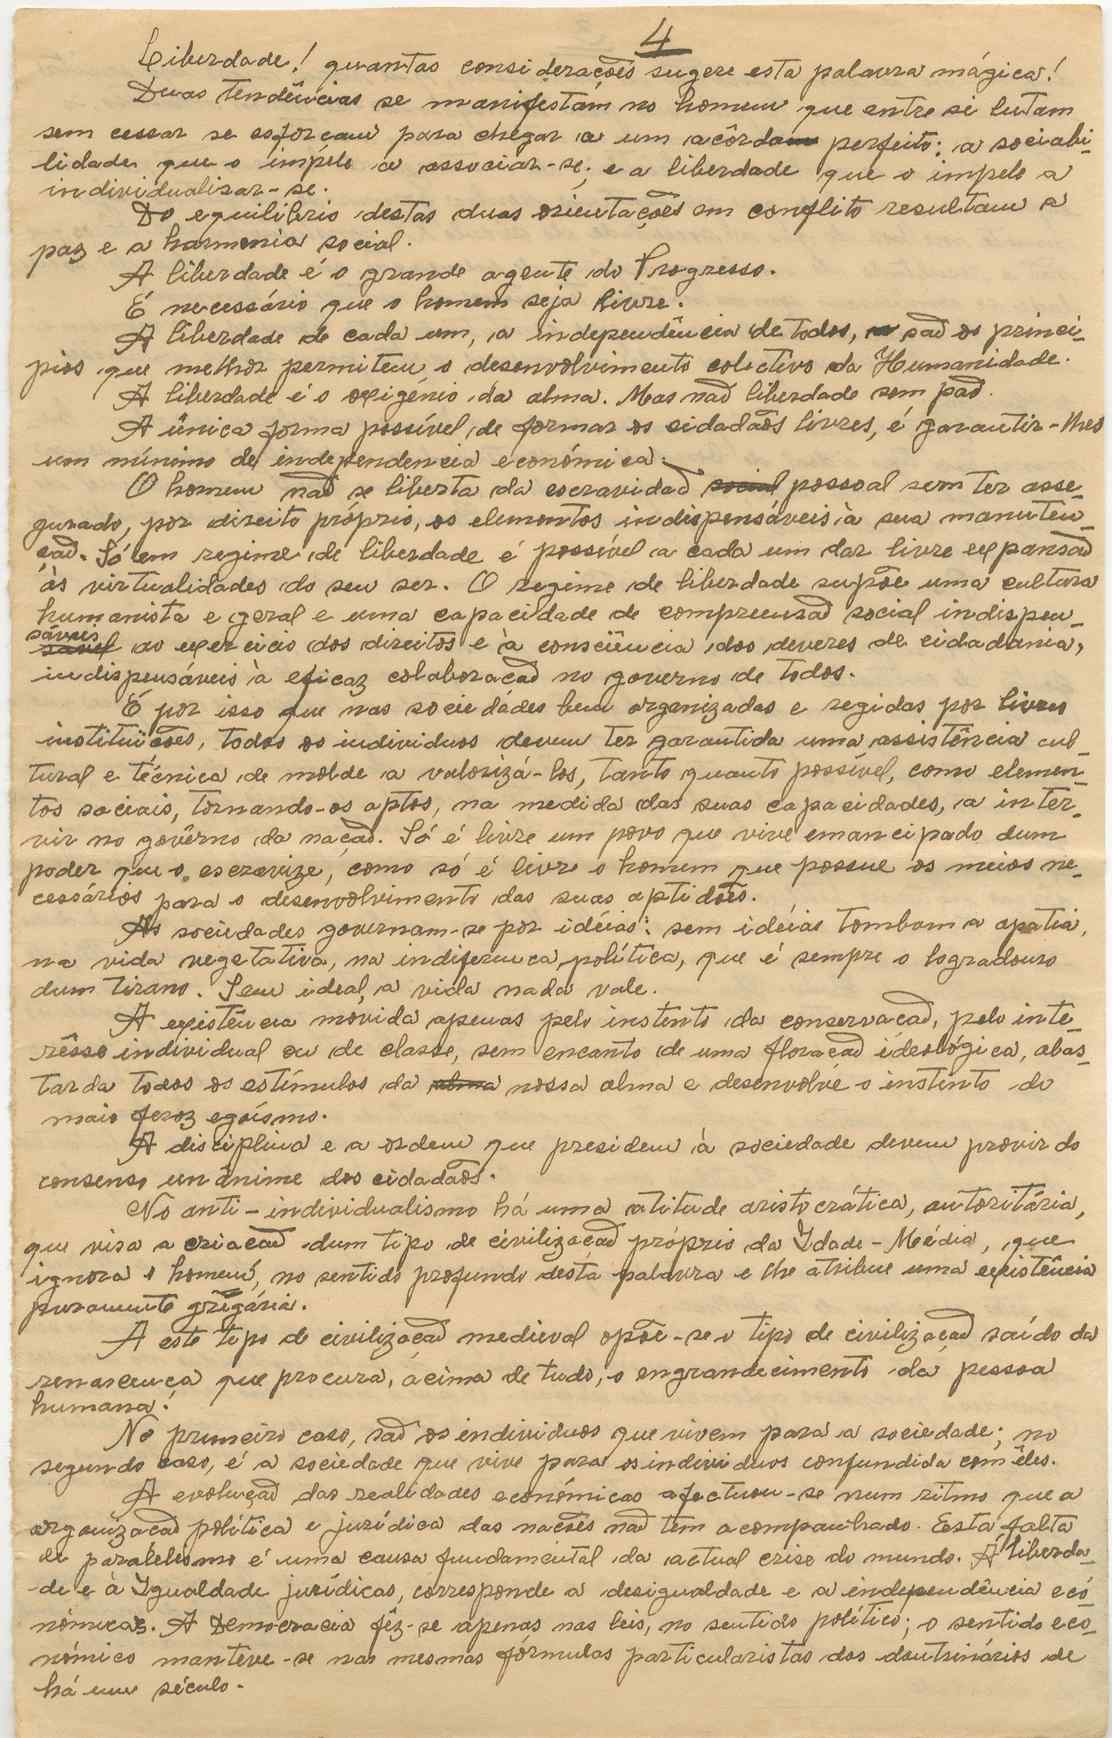 4
Liberdade! quantas considerações sugere esta palavra mágica!
Duas tendências se manifestám no homem que entre si lutam
sem cessar se esforçam para chegar a um acôrdo perfeito: a sociabi-
lidade que o impéle a associar-se; e a liberdade que o impele a
individualisar-se.
Do equilibrio destas duas orientações em conflito resultam a
paz e a harmonia social.
A liberdade é o grande agente do Progresso.
É necessário que o homem seja livre.
A liberdade de cada um, a independência de todos, são os princi-
pios que melhor permitem o desenvolvimento colectivo da Humanidade.
A liberdade é o oxigénio da alma. Mas não liberdade sem pão.
A única forma possível de formar os cidadãos livres, é garantir-lhes
um mínimo de independencia económica.
O homem não se liberta da escravidão social pessoal sem ter asse-
gurado, por direito próprio, os elementos indispensáveis à sua manuten-
ção. Só em regime de liberdade é possível a cada um dar livre expansão
às virtualidades do seu ser. O regime de liberdade supõe uma cultura
humanista e geral e uma capacidade de compreensão social indispen-
sáveis
sável ao exercicio dos direitos e à consciência dos deveres de cidadania,
indispensáveis à eficaz colaboração no governo de todos.
É por isso que nas sociedádes bem organizadas e regidas por livres
instituições, todos os individuos devem ter garantida uma assistência cul-
tural e técnica de molde a valorizá-los, tanto quanto possível, como elemen-
tos sociais, tornando-os aptos, na medida das suas capacidades, a inter-
vir no govêrno da nação. Só é livre um povo que vive emancipado dum
poder que o escravize, como só é livre o homem que possue os meios ne-
cessários para o desenvolvimento das suas aptidões.
As sociedades governam-se por idéias: sem idéias tombam a apatia,
na vida vegetativa, na indiferença política, que é sempre o logradouro
dum tirano. Sem ideal, a vida nada vale.
A existência movida apenas pelo instinto da conservação, pelo inte-
rêsse individual ou de classe, sem encanto de uma floração ideológica, abas-
tarda todos os estímulos da alma nossa alma e desenvolve o instinto do
mais feroz egoísmo.
A disciplina e a ordem que presidem à sociedade devem provir do
consenso unânime dos cidadãos.
No anti-individualismo há uma atitude aristocrática, autoritária,
que visa a criação dum tipo de civilização próprio da Idade-Média, que
ignora o homem, no sentido profundo desta palavra e lhe atribue uma existência
puramente gregária.
A este tipo de civilização medieval opõe-se o tipo de civilização saído da
renascença que procura, ácima de tudo, o engrandecimento da pessoa
humana!
No primeiro caso, são os individuos que vivem para a sociedade; no
segundo caso, é a sociedade que vive para os individuos confundida com êles.
A evolução das realidades económicas afectuou-se num ritmo que a
organização política e jurídica das nações não tem acompanhado. Esta falta
de paralelismo é uma causa fundamental da actual crise do mundo. Á liberda-
de e à Igualdade jurídicas, corresponde a desigualdade e a independência ecó-
nómicas. A Democracia fêz-se apenas nas leis, no sentido político; o sentido eco-
nómico manteve-se nas mesmas fórmulas particularistas dos doutrinários de
há um século.